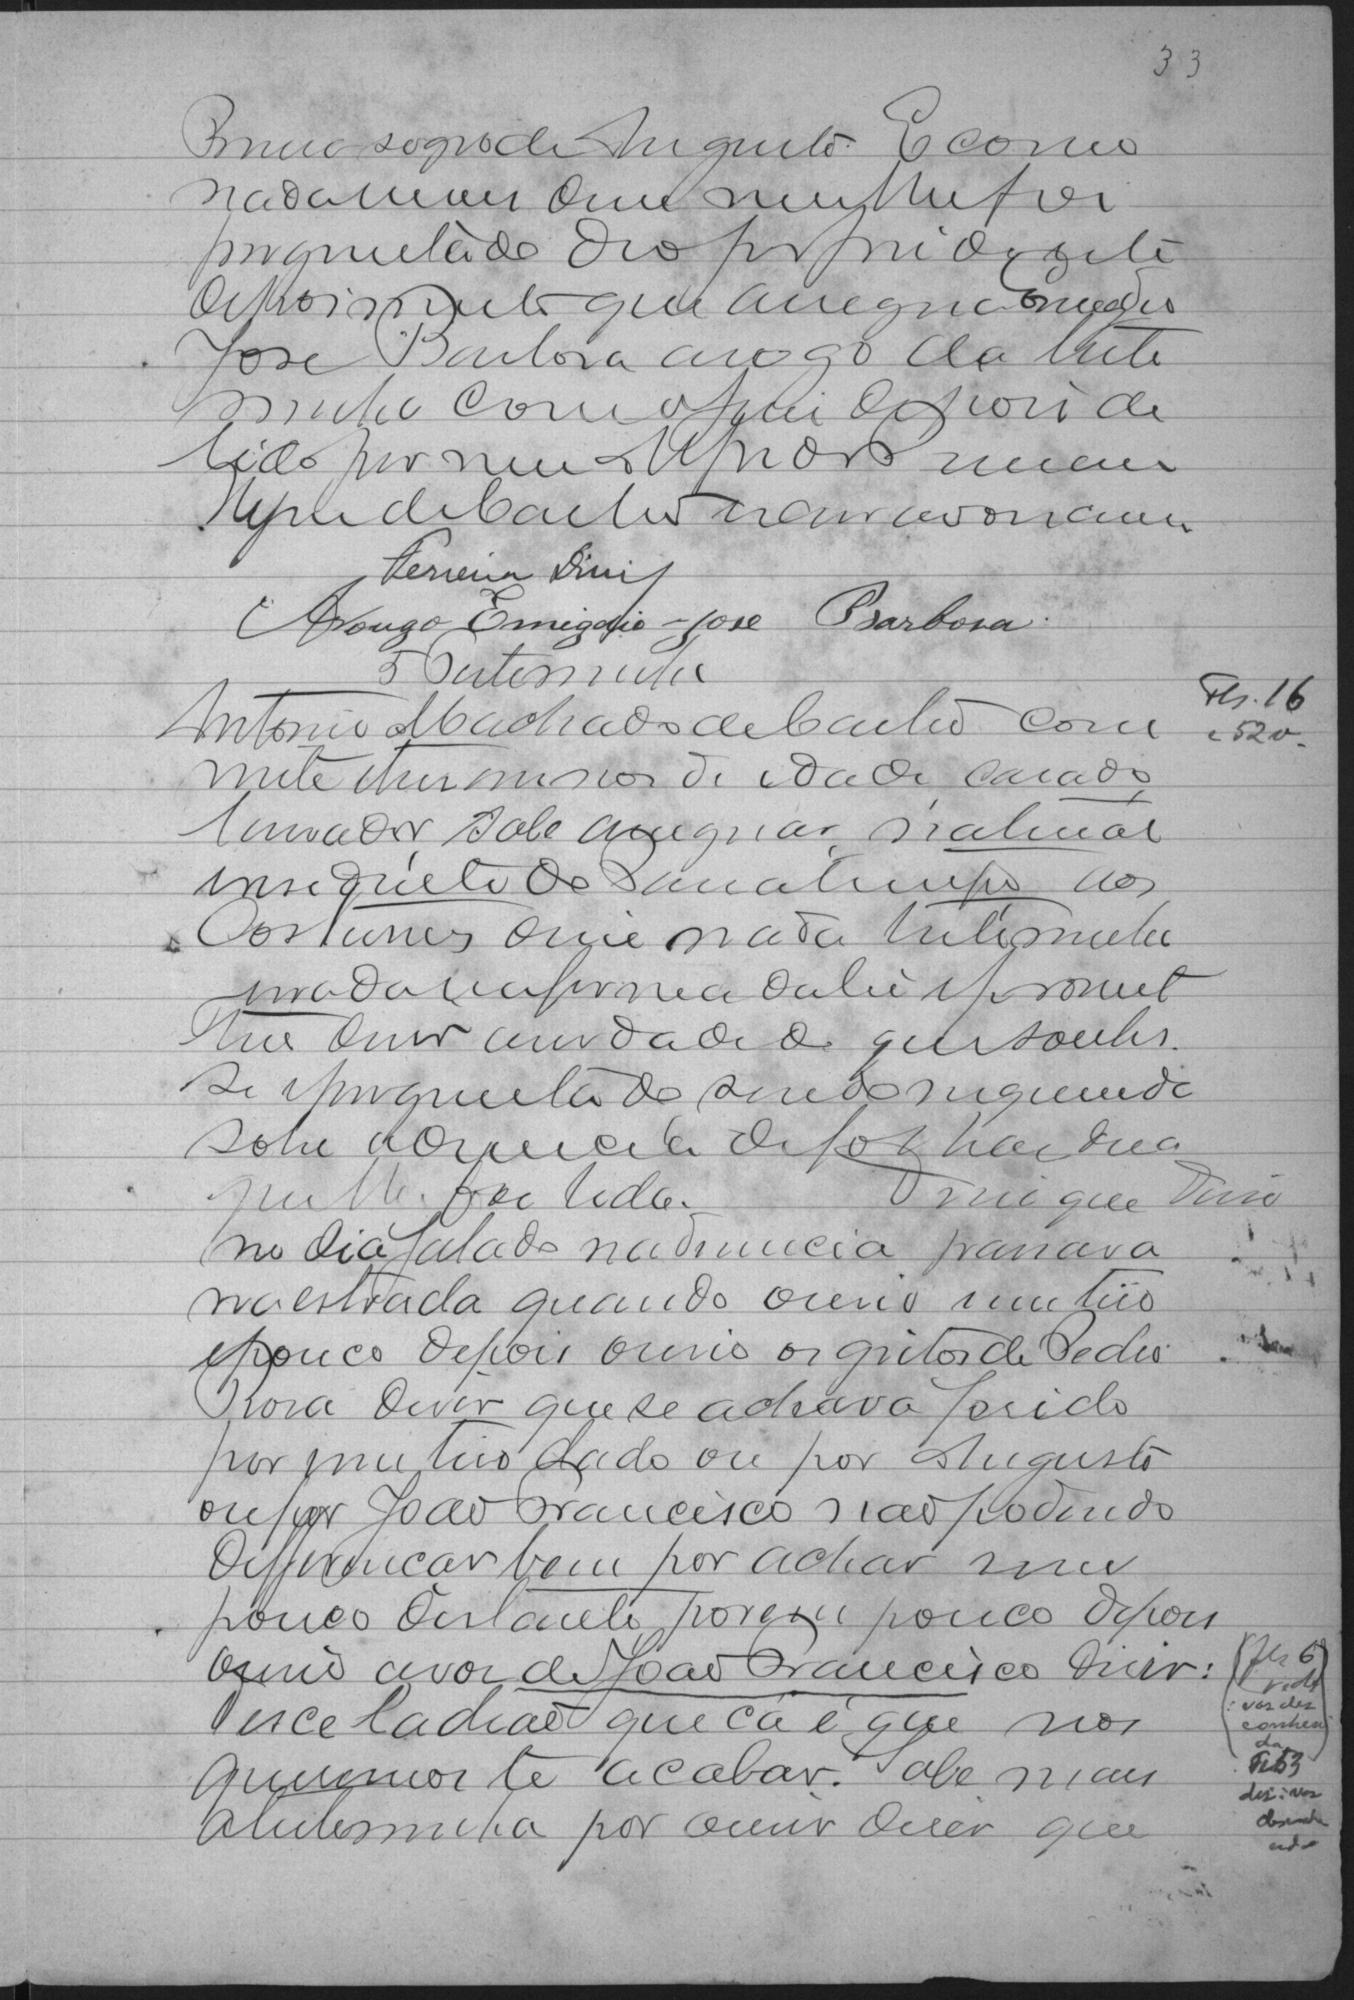 33
sogro de Augusto. E como
nada mais disse nem lhe foi
perguntado deo por findo este
depoimento que assegna Emegdio
Jose Barbosa arogo da teste
munha com o Juiz depois de
lido por mim Izidro
de Castro escrivão o escrevi
Ferreira Diniz
Arougo Emigdio Jose Barbosa.
5ª Testemunha
Antonio Machado de Castro com
vinte tres annos de idade casado,
lavrador, sabe assegnar, natural
neste do aos
Costumes disse nada testemunha
jurada na forma da lei e promet
teu diser averdade do que soubes.
se e perguntado sendo inquerida
sobre a denuncia de folhas duas
que lhe foi lida. Disse que
no dia falado na denuncia passava
na estrada quando ouvio um tiro
e pouco depois ouvio os gritos de Pedro
Rosa diser que se achava ferido
por um tiro dado ou por Augusto
ou por João Francisco não podendo
differençar bem por achar se um
pouco distante, porem pouco depois
ouvio avos de João Francisco diser:
desce ladrão que cá é que nos
queremos te acabar. Sabe mais
a testemunha por ouvir diser que
Fls. 16
e 52 v.
(Fls 6
voz des
conheci
da)
Fls 53
diz: voz